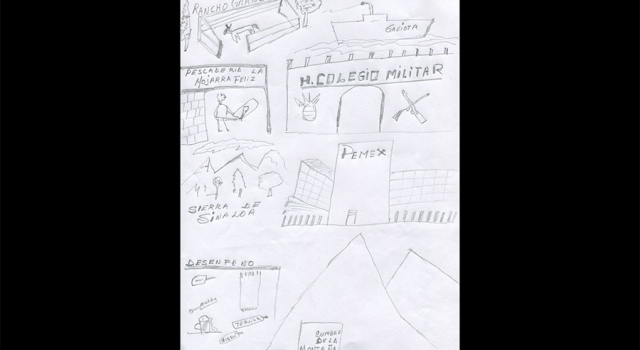 RANCHO GRANDE
GAVIOTA
PESCADERIA LA
MOJARRA FELIZ
H. COLEGIO MILITAR
PEMEX
SIERRA DE
SINALOA
DESENFENO
TEQUILA
CUMBRE
DE LA
MONTAÑA